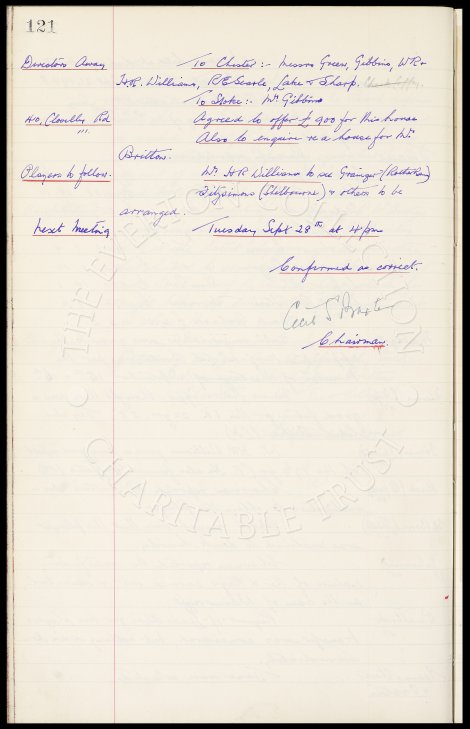 121
Directors Away. To Chester :- Messrs Green, Gibbins, W.R. &
H.R. Williams, R.E. Searle, Lake & Sharp.
To Stoke :- Mr Gibbins
40, Clovelly Rd Agreed to offer £900 for this house
"" Also to enquire re a house for Mr.
Britton.
Players to follow. Mr. H R Williams to see Grainger (Rotherham)
Fitzsimons (Shelbourne) & others to be
arranged.
Next Meeting Tuesday Sept 28th at 4pm
Confirmed as correct.
Cecil S Baxter
Chairman.
THE EVERTON COLLECTION
CHARITABLE TRUST